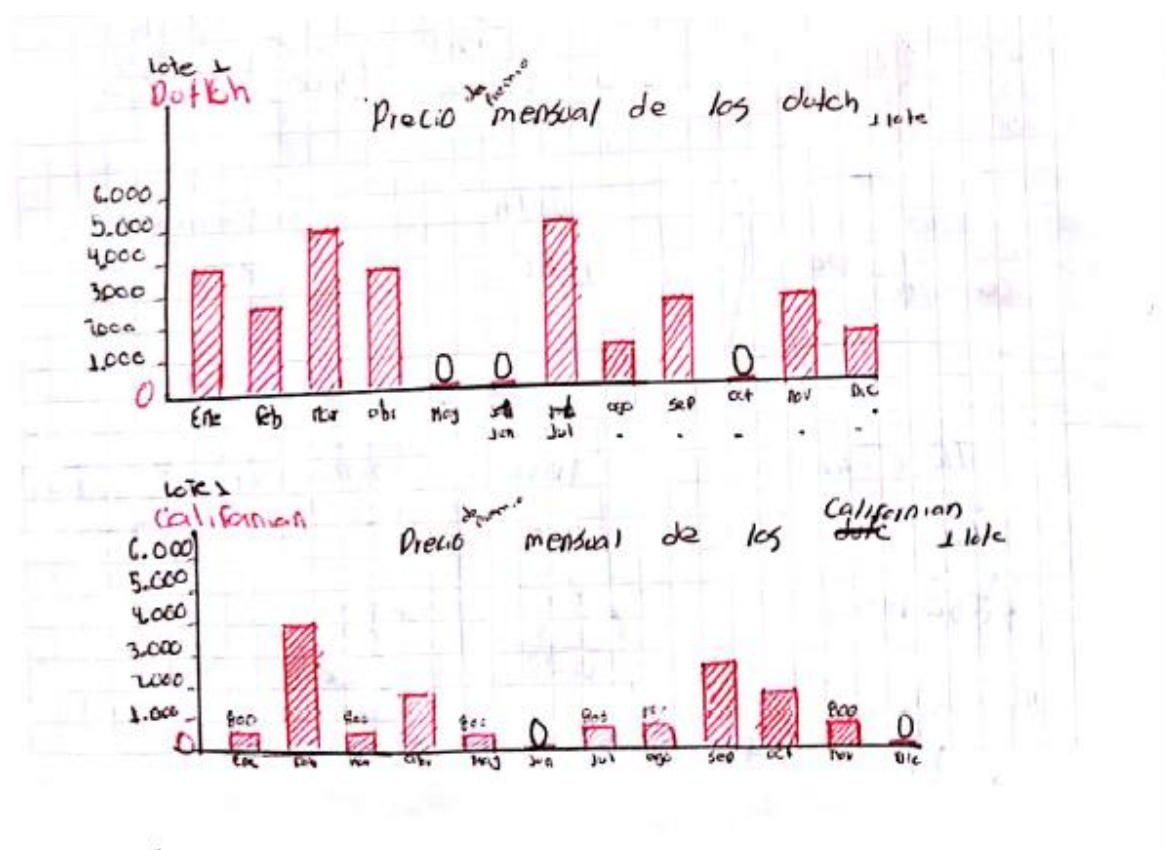 lote 1
Dotkh
Precio de promio mensual de los dutch 1 lote
6.000
5.000
4,000
3000
2000
1.000
0
0 0 0
Ene Feb Mar abr May Jun Jul ago sep oct nov Dic
lote 1
Califarnian
Precio mensual de los Califarnian 1 lote
6.000
5.000
4.000
3.000
2.000
1.000
0
800 800 800 0 800 800 0
Ene Feb mar abr May Jun Jul ago sep oct Nov Dic